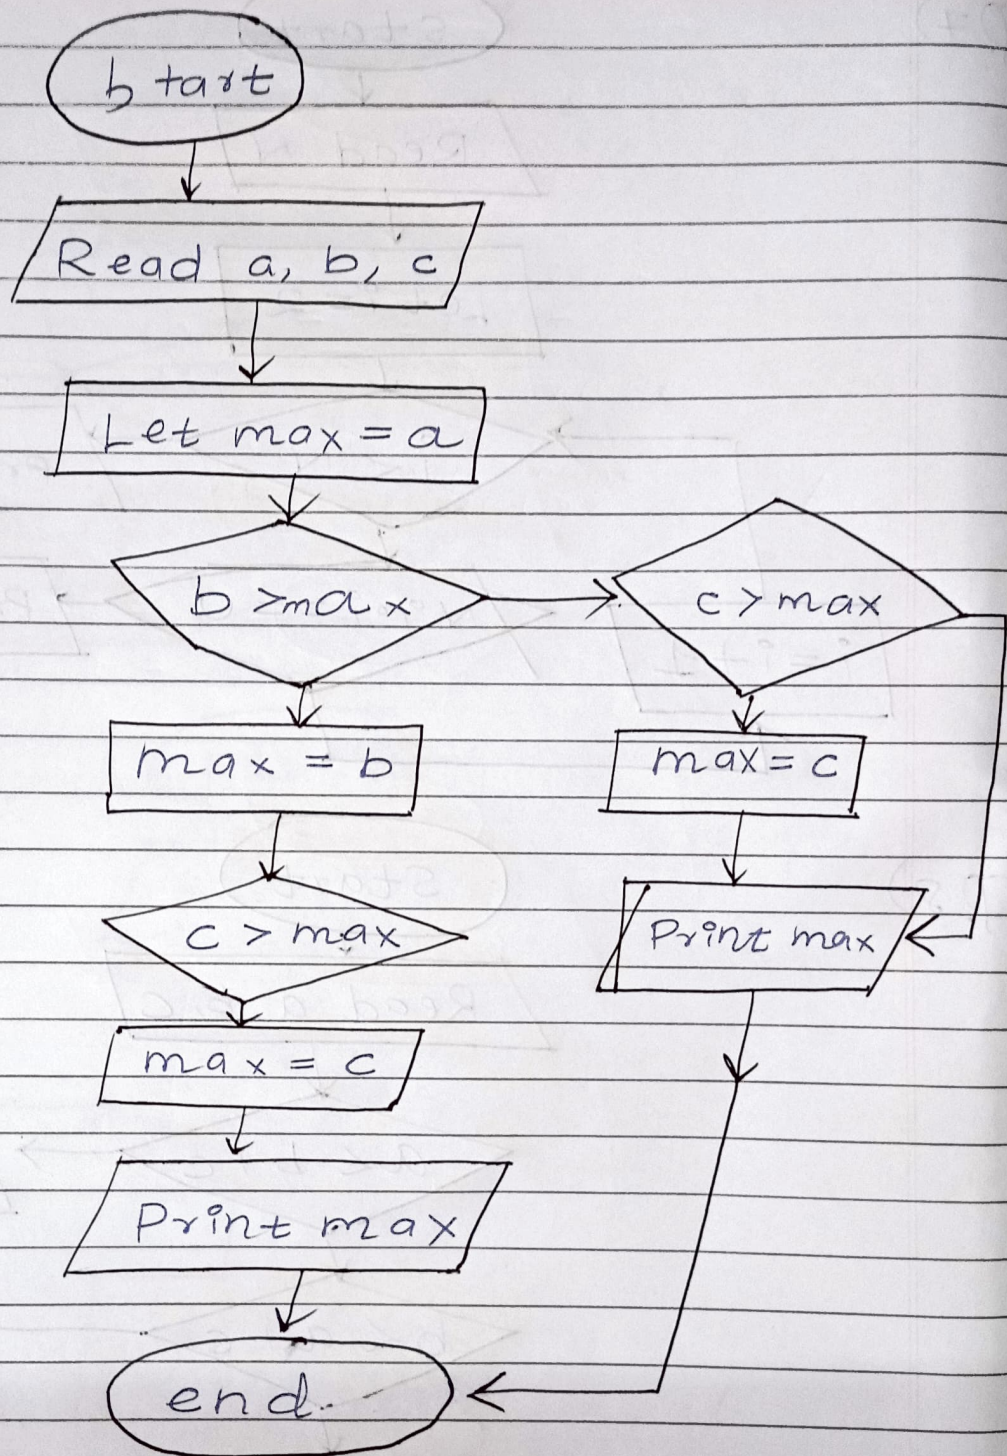 btart
Read a, b, c
Let max = a
b >max
c > max
max = b
max = c
c > max
Print max
max = c
Print max
end.